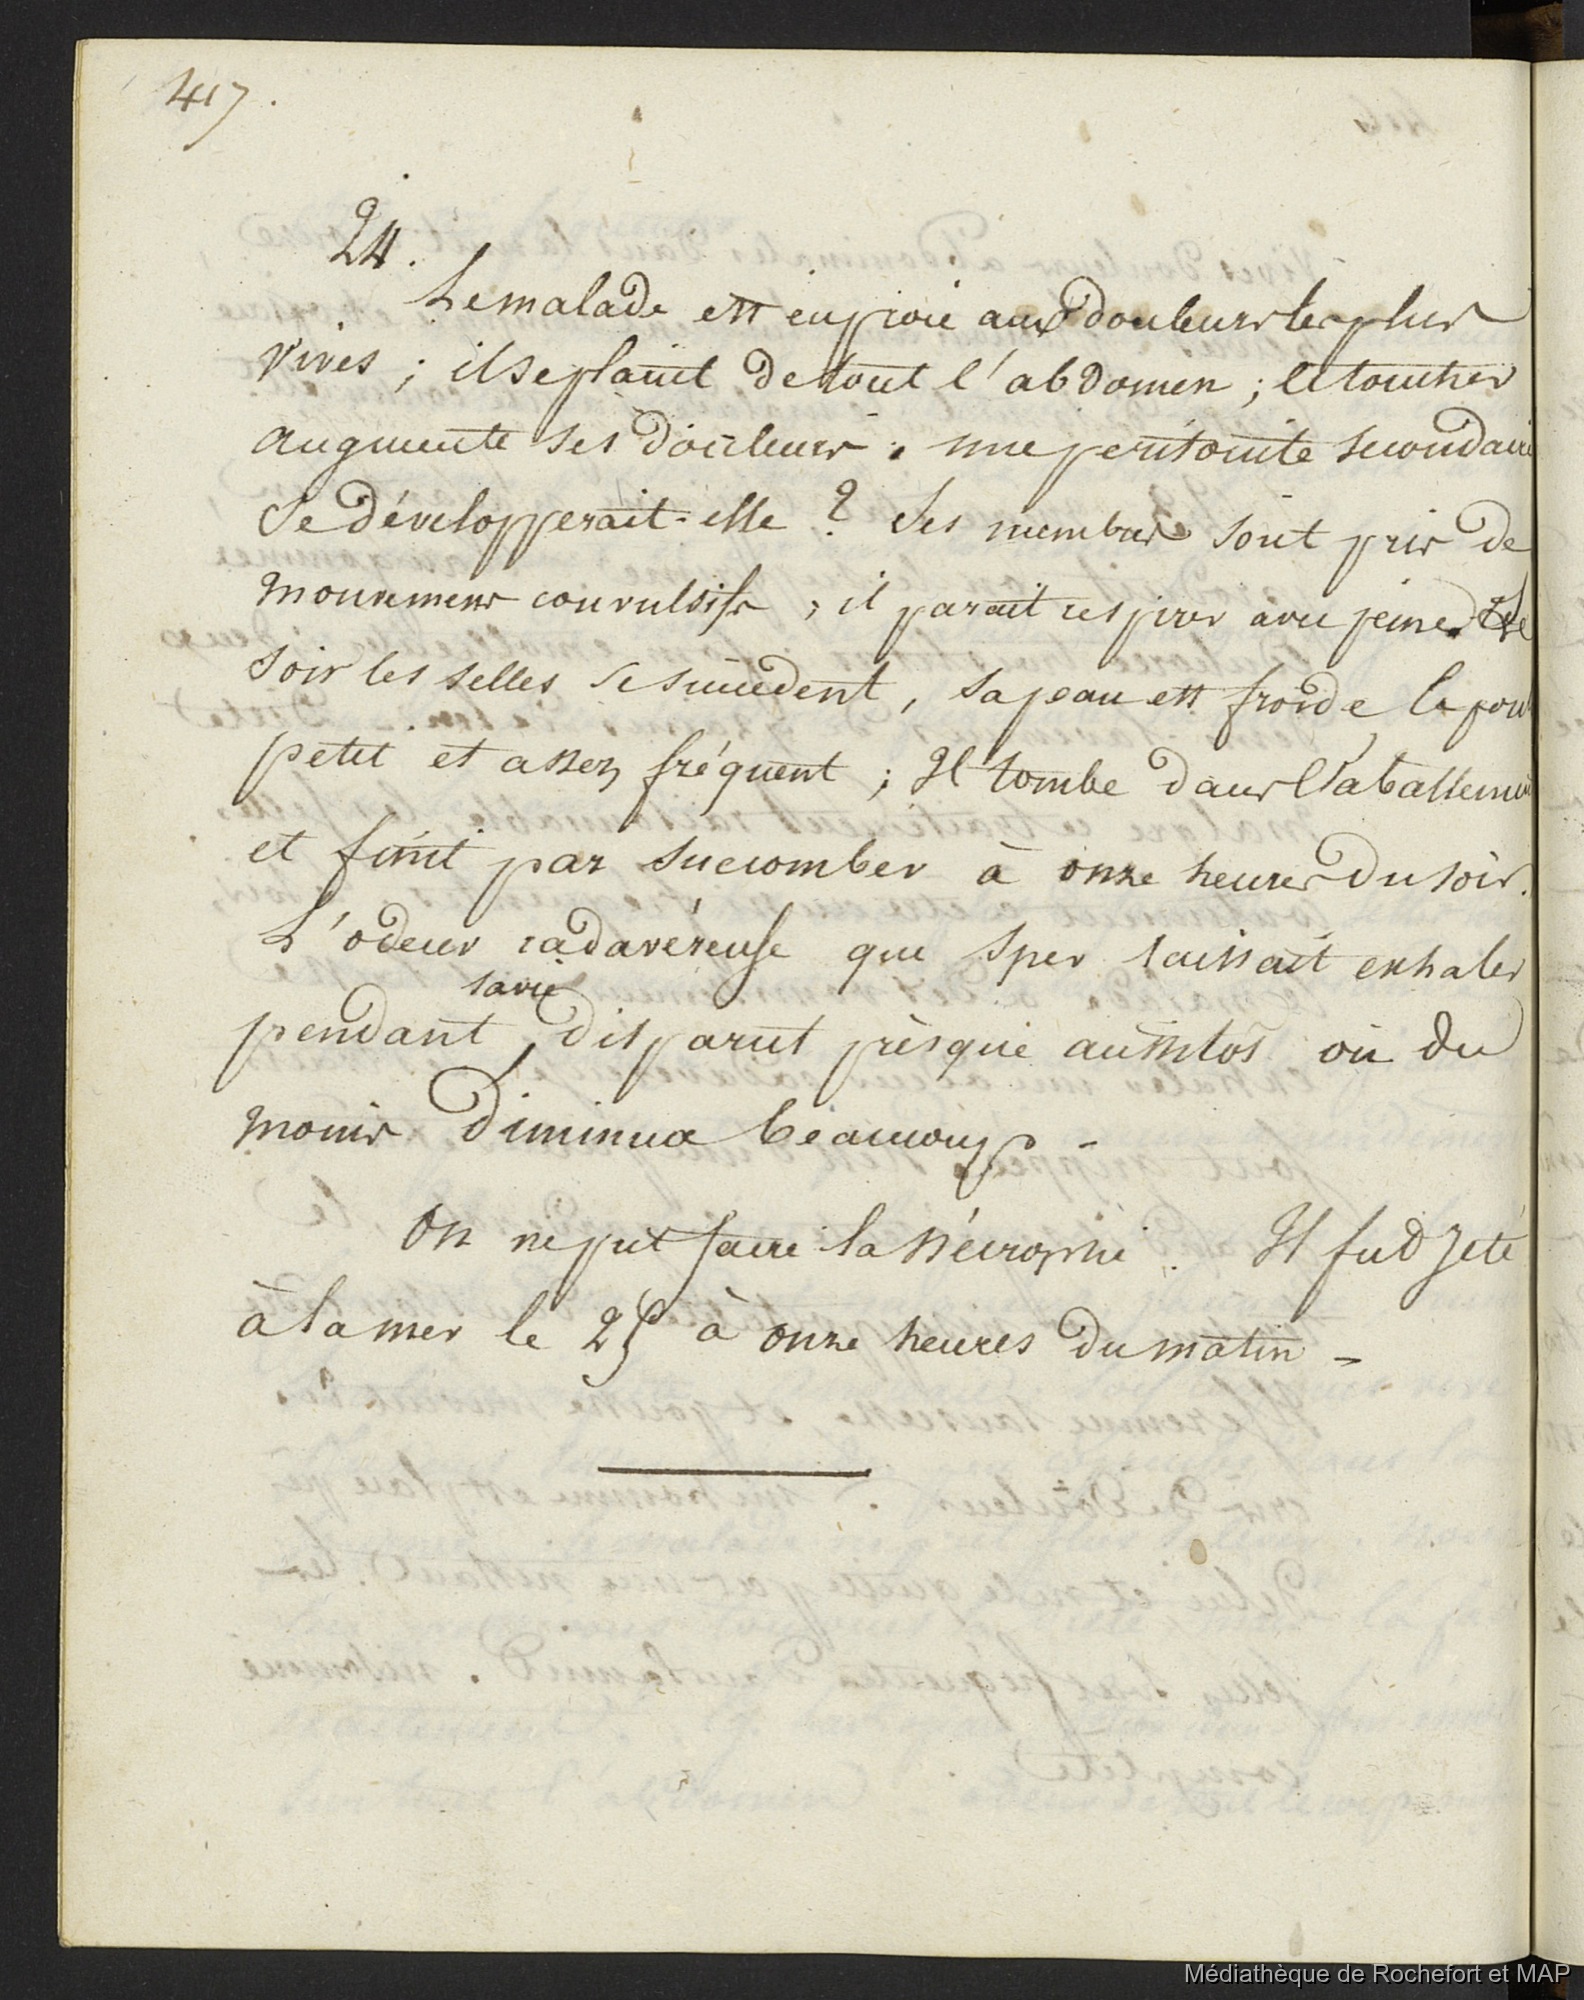 417.
24.
Le malade est en proie aux douleurs les plus
vives ; il se plaint de tout l'abdomen ; le toucher
augmente ses douleurs. une peritonite secondaire
se développerait-elle ? Ses membres sont pris de
mouvemens convulsifs ; il parait respirer avec peine. Le
soir les selles se succèdent, sa peau est froide le pouls
petit et assez fréquent ; Il tombe dans l'abattement
et finit par succomber à onze heures du soir.
L'odeur cadavéreuse que Sper laissait exhaler
sa vie
pendant, disparut presque aussitôt ou du
moins diminua beaucoup -
On ne put faire la nécropsie. Il fut jeté
à la mer le 25 à onze heures du matin -
Médiathèque de Rochefort et MAP